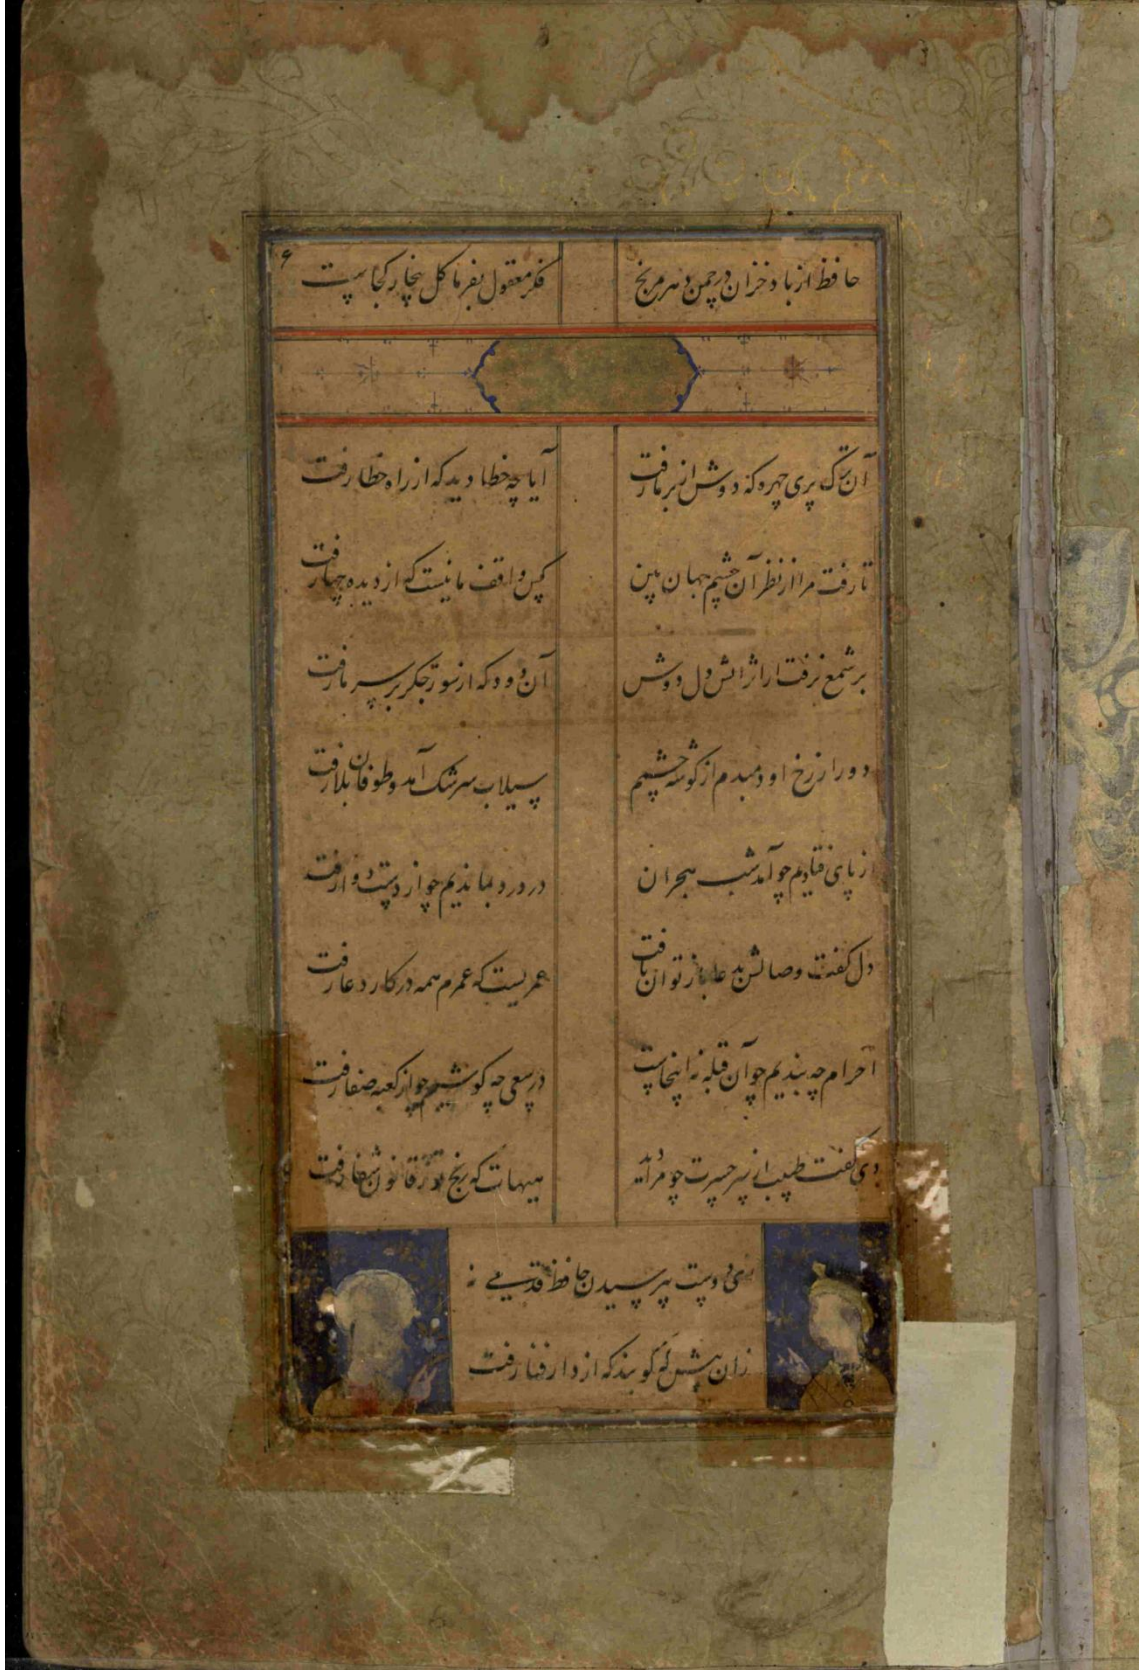 حافظ از باد خزان در چمن دهر مرنج
فکر معقول بفرما گل بیخار کجاست
آن ترک پری چهره که دوش از بر ما رفت
آیا چه خطا دید که از راه خطا رفت
تا رفت مرا از نظر آن چشم جهان بین
کس واقف ما نیست که از دیده چها رفت
بر شمع نرفت از اثر آتش دل دوش
آن دود که از سوز جگر بر سر ما رفت
دور از رخ او دمبدم از گوشه چشمم
سیلاب سرشک آمد و طوفان بلا رفت
از پای فتادیم چو آمد شب هجران
در درد بماندیم چو از دست دوا رفت
دل گفت وصالش بدعا باز توان یافت
عمریست که عمرم همه در کار دعا رفت
احرام چه بندیم چو آن قبله نه اینجاست
در سعی چه کوشیم چو از کعبه صفا رفت
دی گفت طبیب از سر حسرت چو مرا دید
هیهات که رنج تو ز قانون شفا رفت
ای دوست بپرسیدن حافظ قدمی نه
زان پیش که گویند که از دار فنا رفت